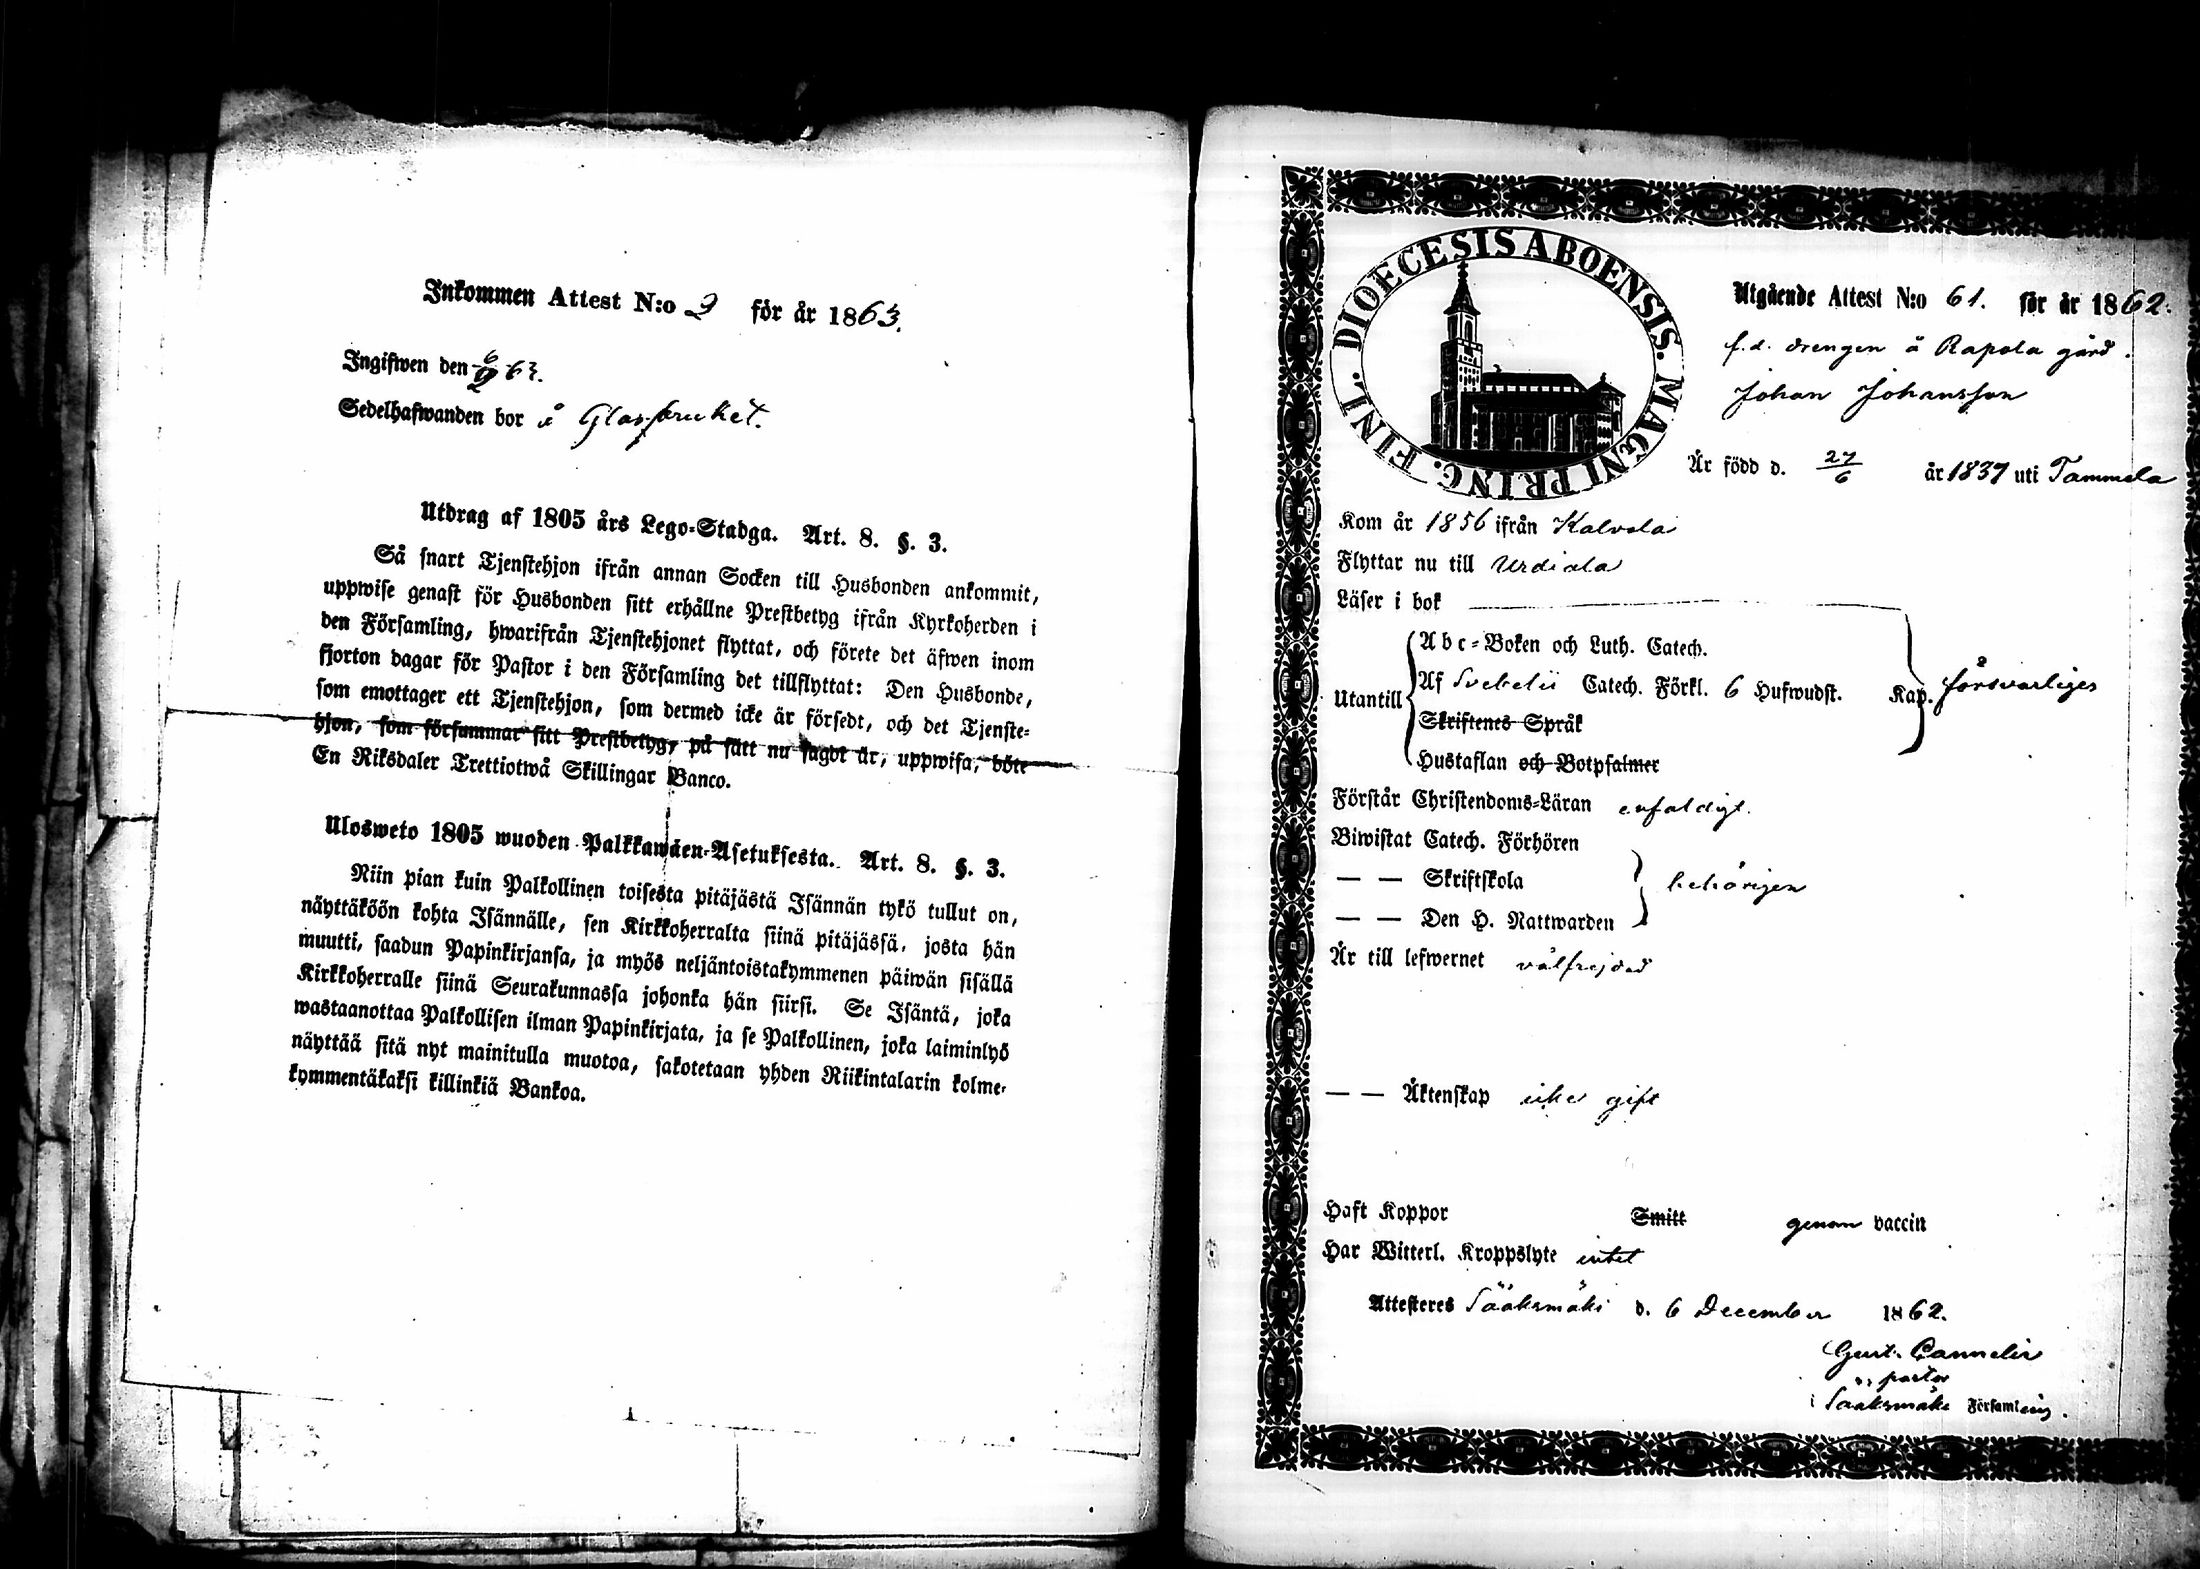 Inkommen Attest N:o 2 för år 1863.
Ingifwen den 6/2 63.
Sedelhafwanden bor å Glasbruket.
Utdrag af 1805 års Lego-Stadga. Art. 8. §. 3.
Så snart Tjenstehjon ifrån annan Socken till Husbonden ankommit,
uppwise genast för Husbonden sitt erhållne Prestbetyg ifrån Kyrkoherden i
den Församling, hwarifrån Tjenstehjonet flyttat, och förete det äfwen inom
fjorton dagar för Pastor i den Församling det tillflyttat: Den Husbonde,
som emottager ett Tjenstehjon, som dermed icke är försedt, och det Tjenste-
hjon, som försummar sitt Prestbetyg, på sätt nu sagdt är, uppwisa, böte
En Riksdaler Trettiotwå Skillingar Banco.
Ulosweto 1805 wuoden Palkkawäen-Asetuksesta. Art. 8. §. 3.
Niin pian kuin Palkollinen toisesta pitäjästä Isännän tykö tullut on,
näyttäköön kohta Isännälle, sen Kirkkoherralta siinä pitäjässä, josta hän
muutti, saadun Papinkirjansa, ja myös neljäntoistakymmenen päiwän sisällä
Kirkkoherralle siinä Seurakunnassa johonka hän siirsi. Se Isäntä, joka
wastaanottaa Palkollisen ilman Papinkirjata, ja se Palkollinen, joka laiminlyö
näyttää sitä nyt mainitulla muotoa, sakotetaan yhden Riikintalarin kolme-
kymmentäkaksi killinkiä Bankoa.
DIOECESIS ABOENSIS. MAGNI PRINC. FINL.
Utgående Attest N:o 61. för år 1862.
f.d. drengen å Rapola gård.
Johan Johansson
Är född d. 27/6 år 1837 uti Tammela
Kom år 1856 ifrån Kalvola
Flyttar nu till Urdiala
Läser i bok
Utantill
Abc-Boken och Luth. Catech.
Af Svebelii Catech. Förkl. 6 Hufwudst. Kap. försvarligen
Skriftenes Språk
Hustaflan och Botpsalmer
Förstår Christendoms-Läran enfaldigt.
Biwistat Catech. Förhören
— — Skriftskola behörigen
— — Den H. Nattwarden
Är till lefwernet välfrejdad
— — Äktenskap icke gift
Haft Koppor Smitt genom vaccin
Har Witterl. Kroppslyte intet
Attesteres Sääksmäki d. 6 December 1862.
Gust. Cannelin
pastor
i Sääksmäki Församling.